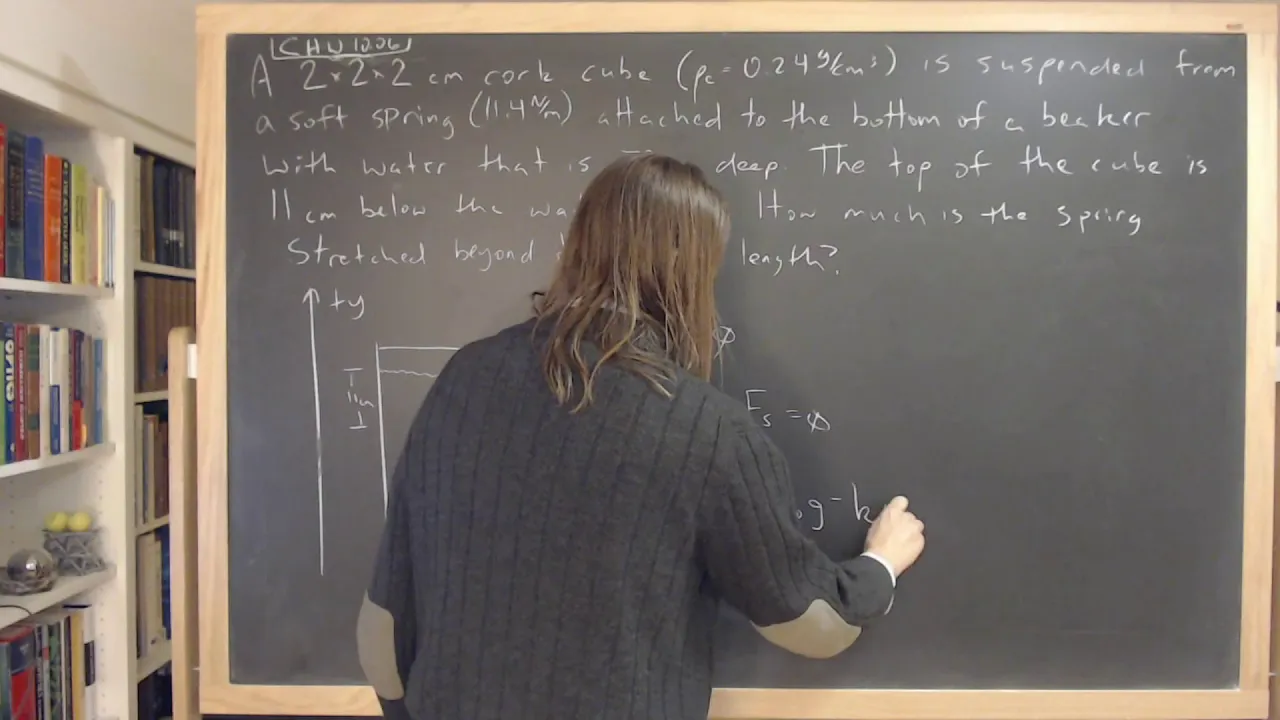 CHW 10.06
A 2×2×2 cm cork cube (ρc = 0.24 g/cm³) is suspended from
a soft spring (11.4 N/m) attached to the bottom of a beaker
with water that is deep. The top of the cube is
11 cm below the How much is the spring
stretched beyond length?
+y
11cm
Fs = ∅
g - k